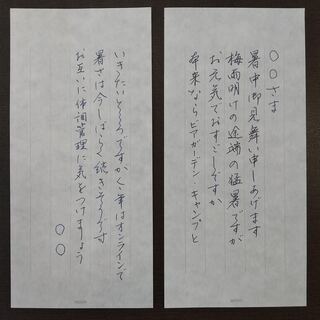 ○○さま
暑中御見舞い申しあげます
梅雨明けの途端の猛暑ですが
お元気でおすごしですか
本来ならビアガーデン・キャンプと
いきたいところですが今年はオンラインで
暑さは今しばらく続きそうです
お互いに体調管理に気をつけましょう
○○